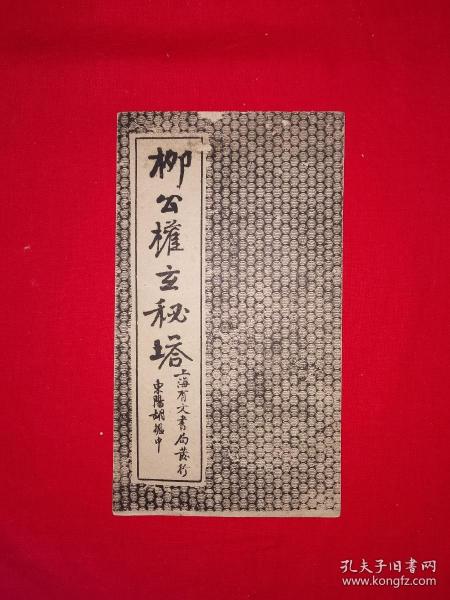 柳公權玄秘塔
上海有文書局發行
東陽胡
中
孔夫子旧书网
www.kongfz.com